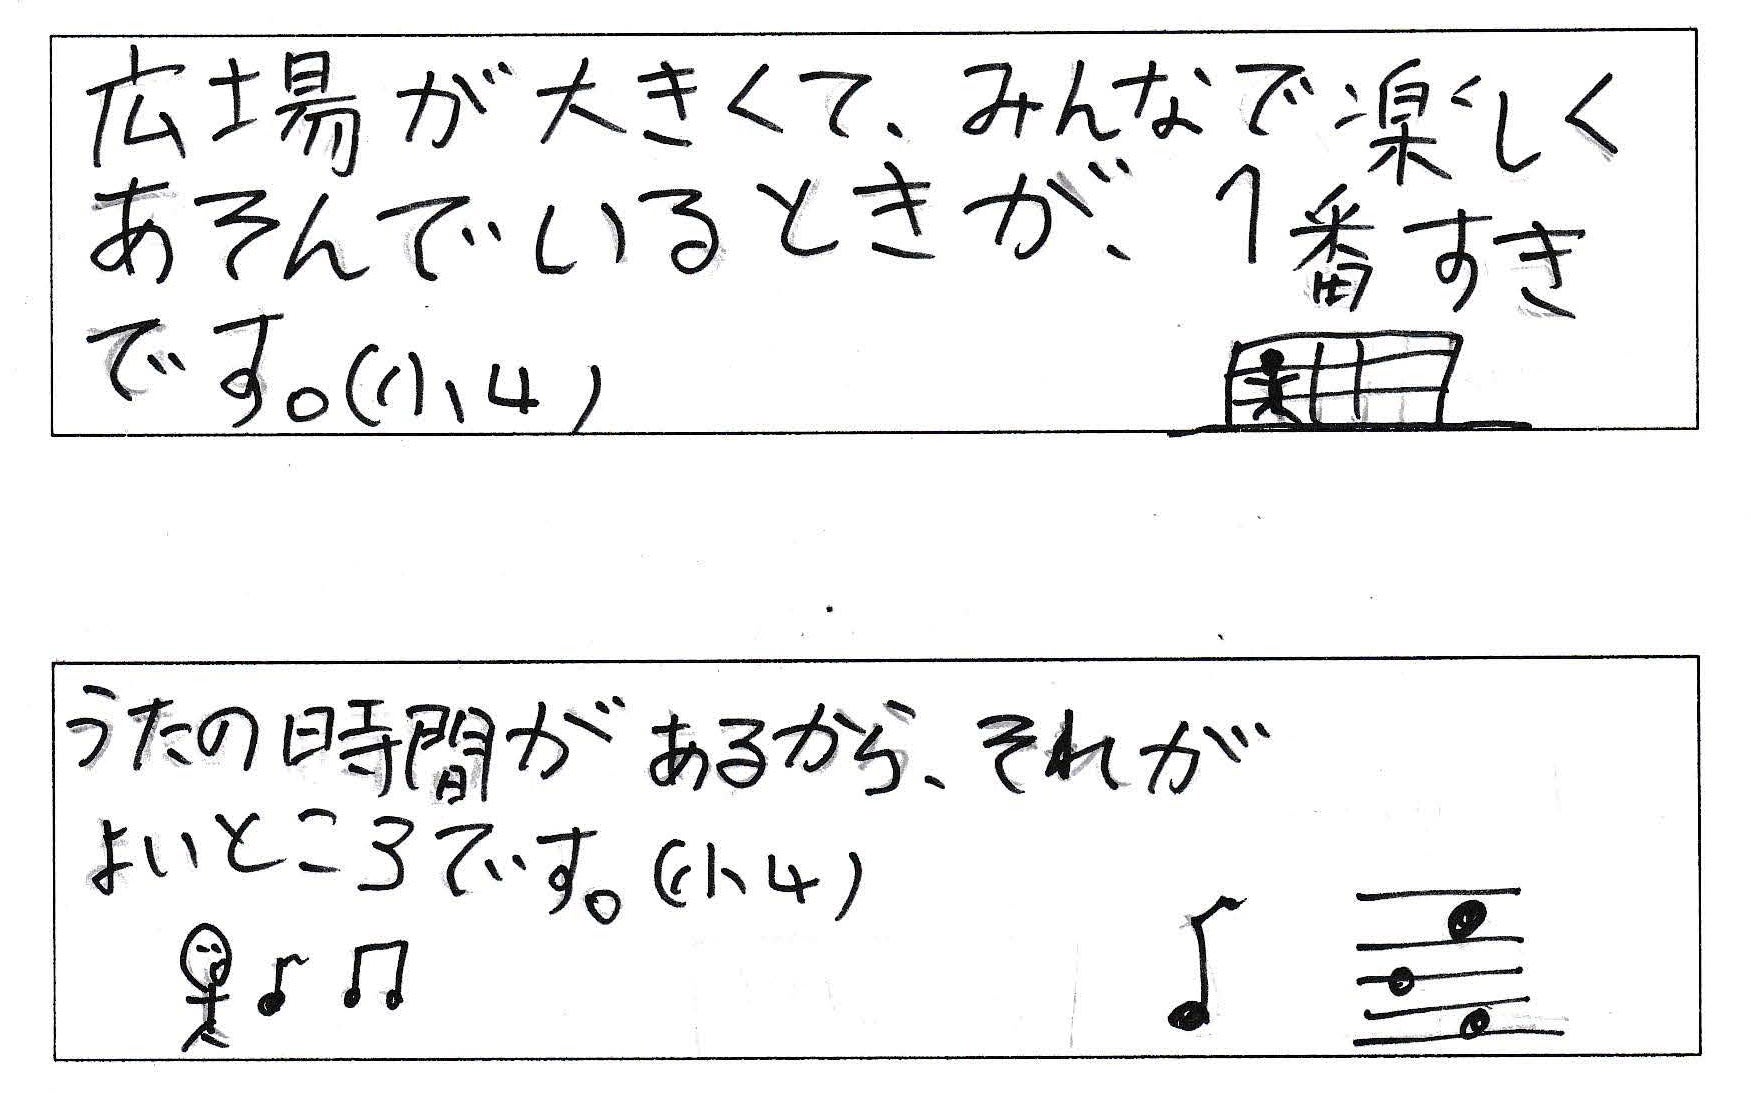 広場が大きくて、みんなで楽しく
あそんでいるときが、1番すき
です。(小4)
うたの時間があるから、それが
よいところです。(小4)